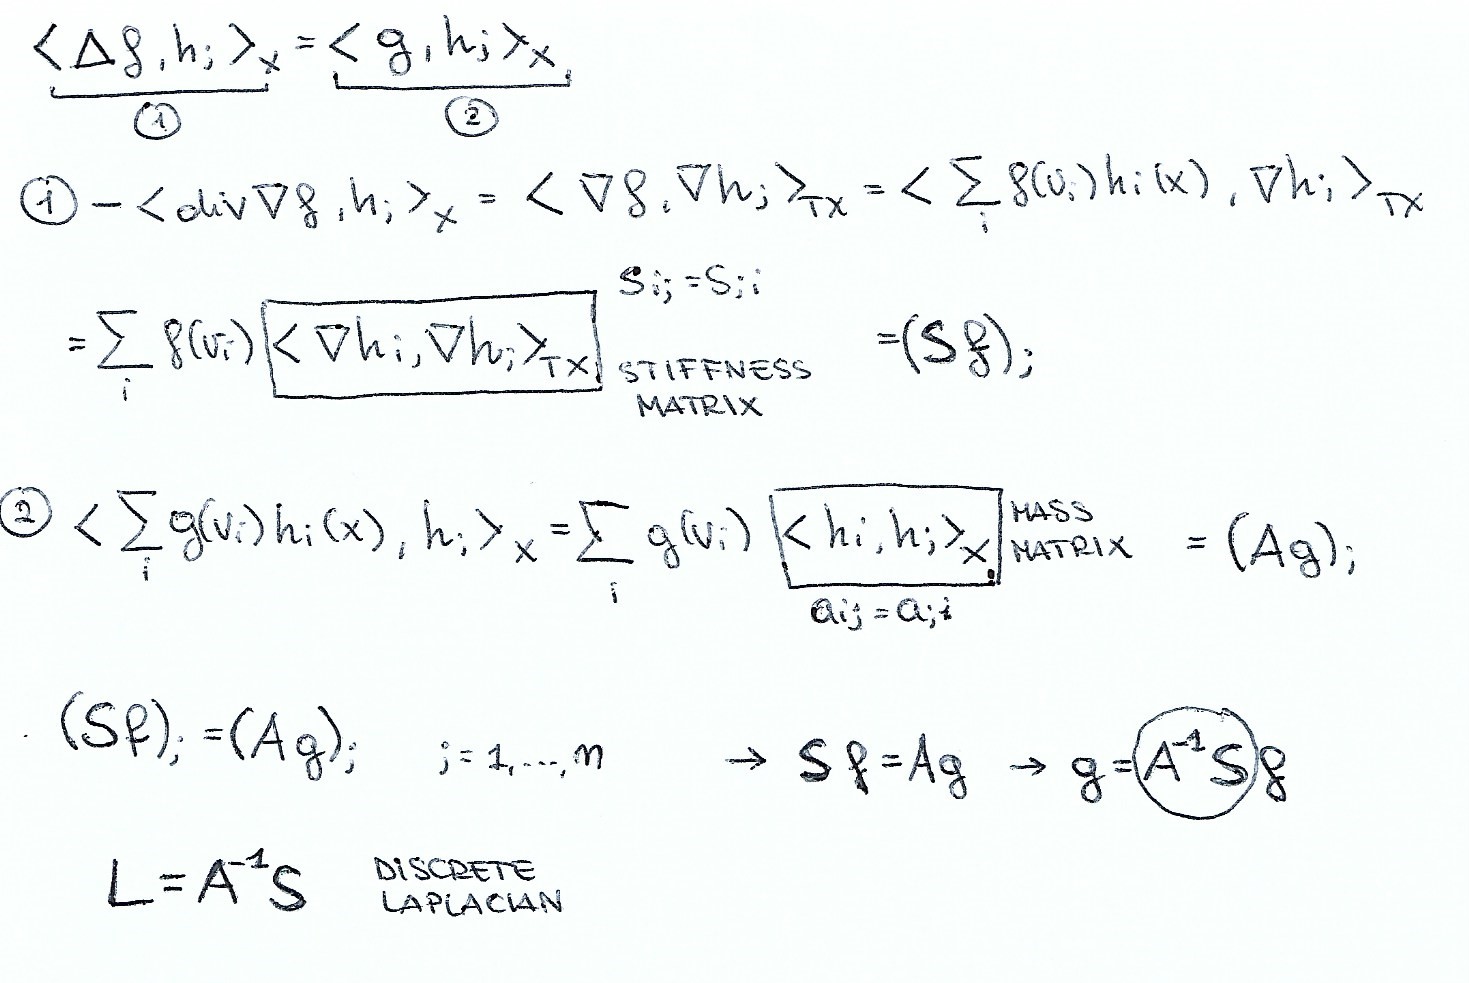 <Δf, hj>X = <g, hj>X
① ②
① - <div∇f, hj>X = <∇f, ∇hj>TX = <∑i f(vi)hi(x), ∇hj>TX
sij = sji
= ∑i f(vi) <∇hi, ∇hj>TX = (Sf)j
STIFFNESS
MATRIX
② <∑i g(vi)hi(x), hj>X = ∑i g(vi) <hi, hj>X MASS MATRIX = (Ag)j
aij = aji
(Sf)j = (Ag)j j = 1,...,n → Sf = Ag → g = A⁻¹S f
L = A⁻¹S DISCRETE
LAPLACIAN